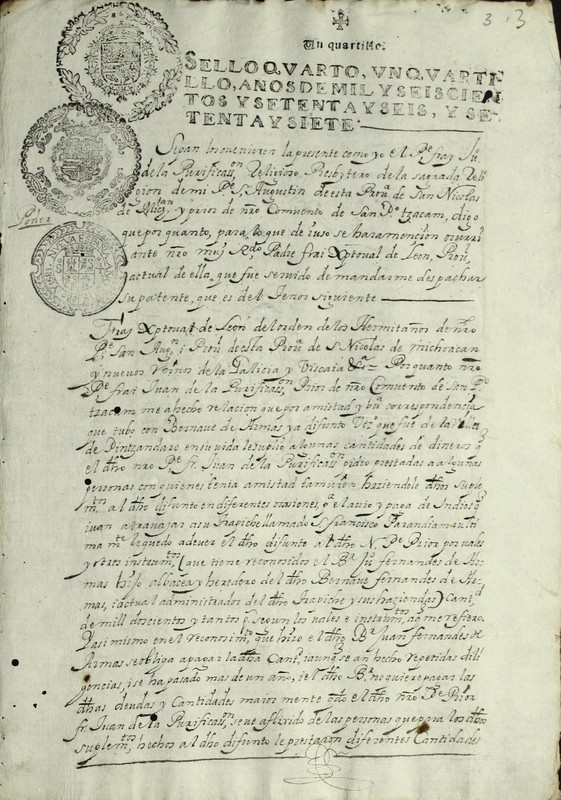 3 . 3
Un quartillo.
SELLO QVARTO, VN QVARTI-
LLO, AÑOS DE MIL Y SEISCIEN
TOS Y SETENTA Y SEIS, Y SE-
TENTA Y SIETE
Sepan los que vieren la presente como yo el Pe frai Ju.
de la Purificaon Religioso Presbytero de la sagrada Reli
gion de mi Pe S. Augustin de esta Prou.a de San Nicolas
Poder
de Michan y prior de nro Comuento de San Po tzacam, digo
que por quanto, para lo que de iuso se hara mencion ocurri
ante nro muy Rdo Padre frai Xptoual de Leon, Prou.
actual de ella, que fue seruido de mandarme despachar
su patente, que es del tenor siguiente
Frai Xptoual de Leon del orden de los Hermitaños de nro
Pe San Augn i Prou de esta Prou.a de S Nicolas de michoacan
y nueuos Reinos de la Galicia y Viscaia &a Por quanto nro
Pe frai Juan de la Purificason Prior de nro Comuento de San Po
tzacam, me a hecho relacion que por amistad y bu correspondencia
que tubo con Bernaue de Armas ya difunto Vezo que fue de la
de Pintzandaro en su vida le suplio algunas cantidades de dineros q
el dho nro Pe fr. Juan de la Purificason pidio prestadas a algunas
personas con quienes tenia amistad haziendole dhos suple
mtos al dho difunto en diferentes ocasiones, pa el auio y paga de Indios q
iuan a trauajar a su trapiche llamado S francisco Parandian
ma mte le quedo a deuer el dho difunto al dho N. Pe Prior por vales
y otros instrumtos (que tiene reconosidos el Br Ju fernandes de Ar
mas hijo albacea y heredero del dho Bernaue fernandes de Ar-
mas, i actual administrador del dho trapiche y sus haziendas) Cantd
de mil dosientos y tantos ps segun los vales e instrumtos a q me refiero.
Y asi mismo en el reconosimto que hizo el dho Br Juan fernandes de
Armas se obliga a pagar la dha Cantd i aunq se an hecho repetidas dili
gencias, i se ha pasado mas de un año, i el dho Br no quiere pagar las
dhas deudas y Cantidades maior mente qdo el dho nro Pe Prior
fr. Juan de la Purificason se ve aflixido de las personas que para los dhos
suplemtos, hechos al dho difunto le prestaron diferentes Cantidades